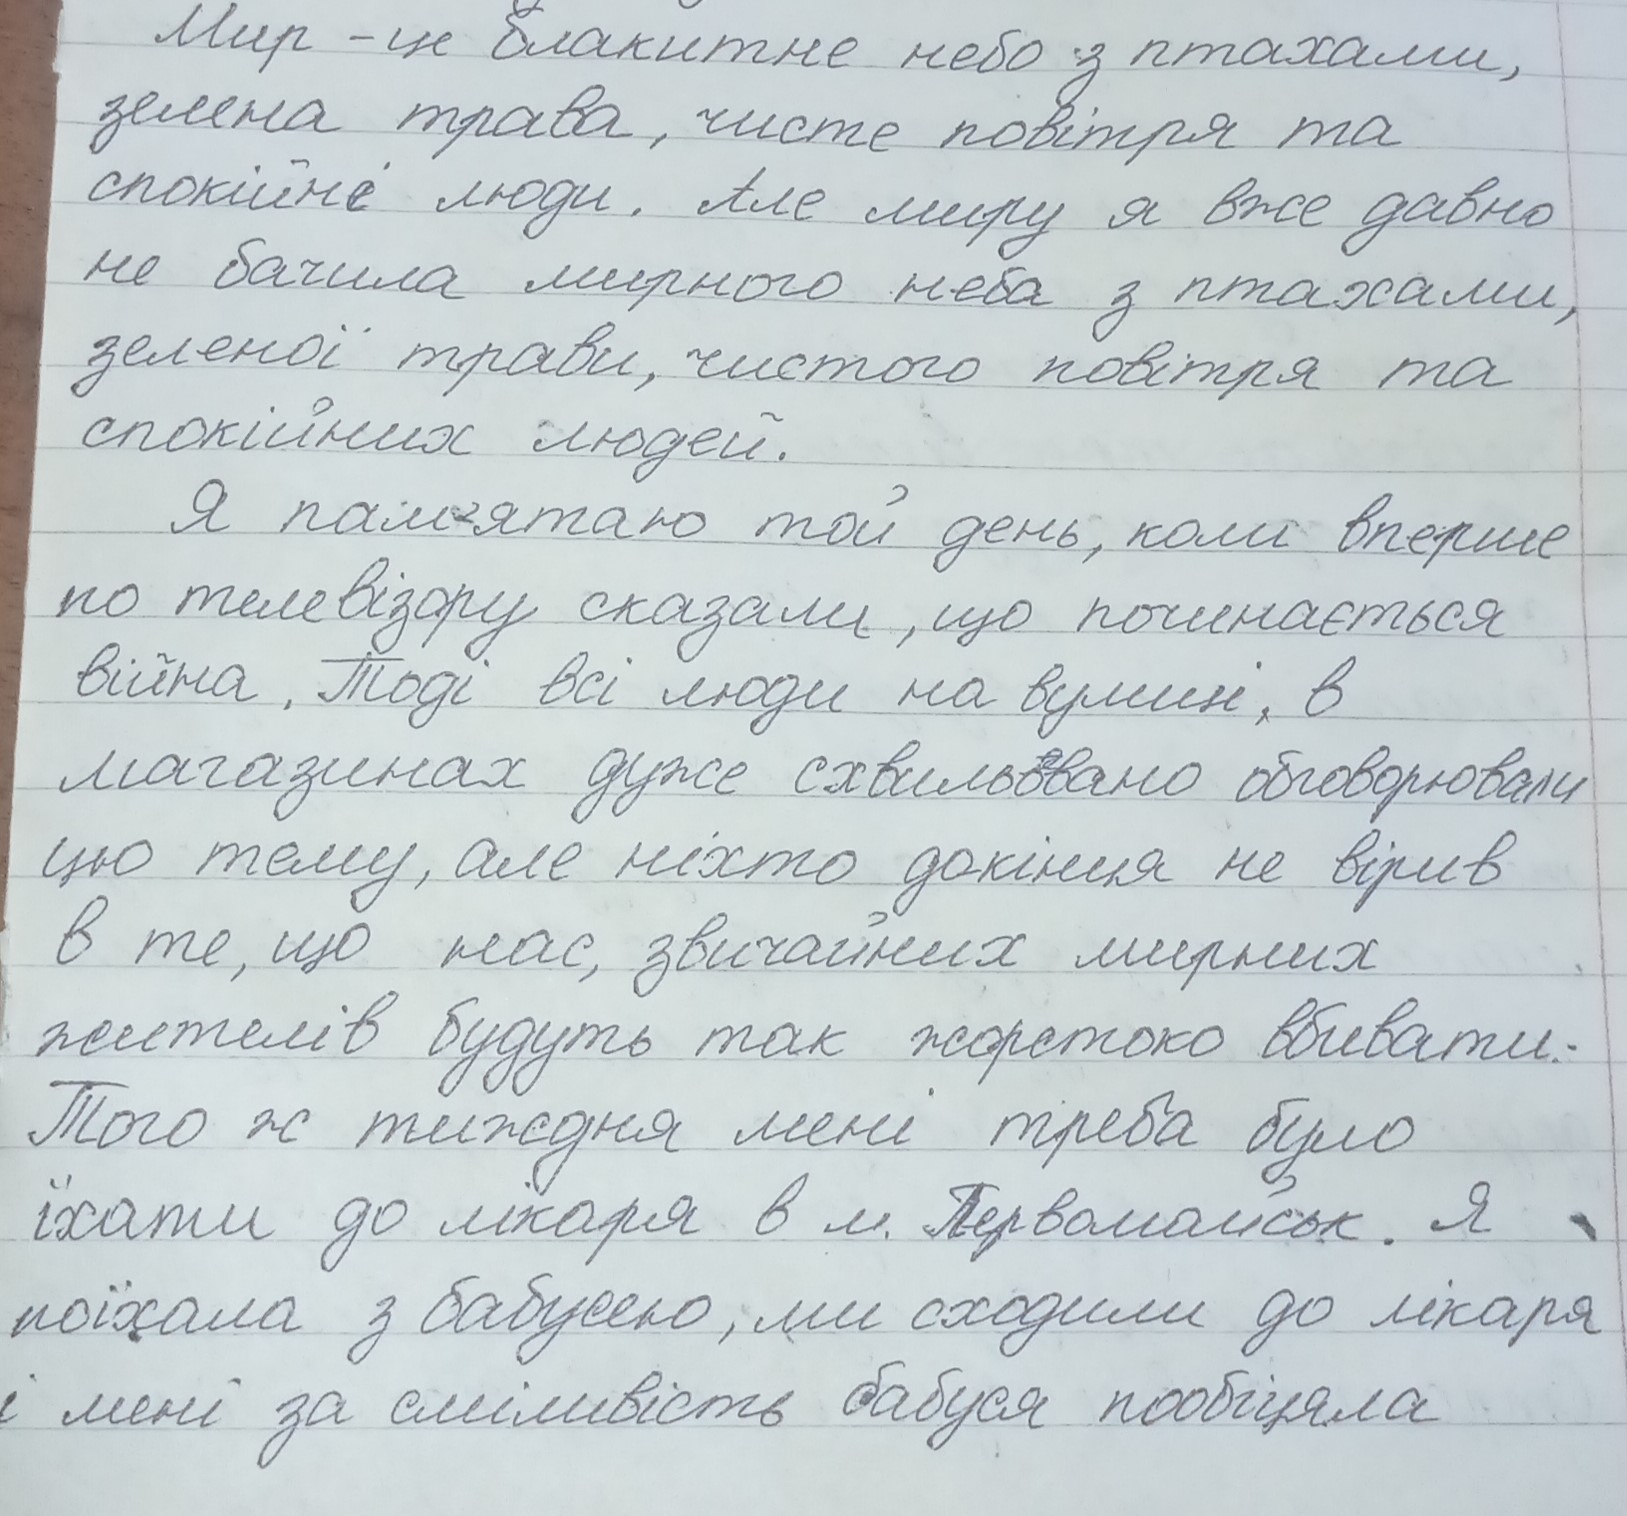 Мир - це блакитне небо з птахами,
зелена трава, чисте повітря та
спокійні люди. Але миру я вже давно
не бачила мирного неба з птахами,
зеленої трави, чистого повітря та
спокійних людей.
Я пам'ятаю той день, коли вперше
по телевізору сказали, що починається
війна. Тоді всі люди на вулиці, в
магазинах дуже схвильовано обговорювали
цю тему, але ніхто докінця не вірив
в те, що нас, звичайних мирних
жителів будуть так жорстоко вбивати.
Того ж тиждня мені треба було
їхати до лікаря в м. Первомайськ. Я
поїхала з бабусею, ми сходили до лікаря
і мені за сміливість бабуся пообіцяла